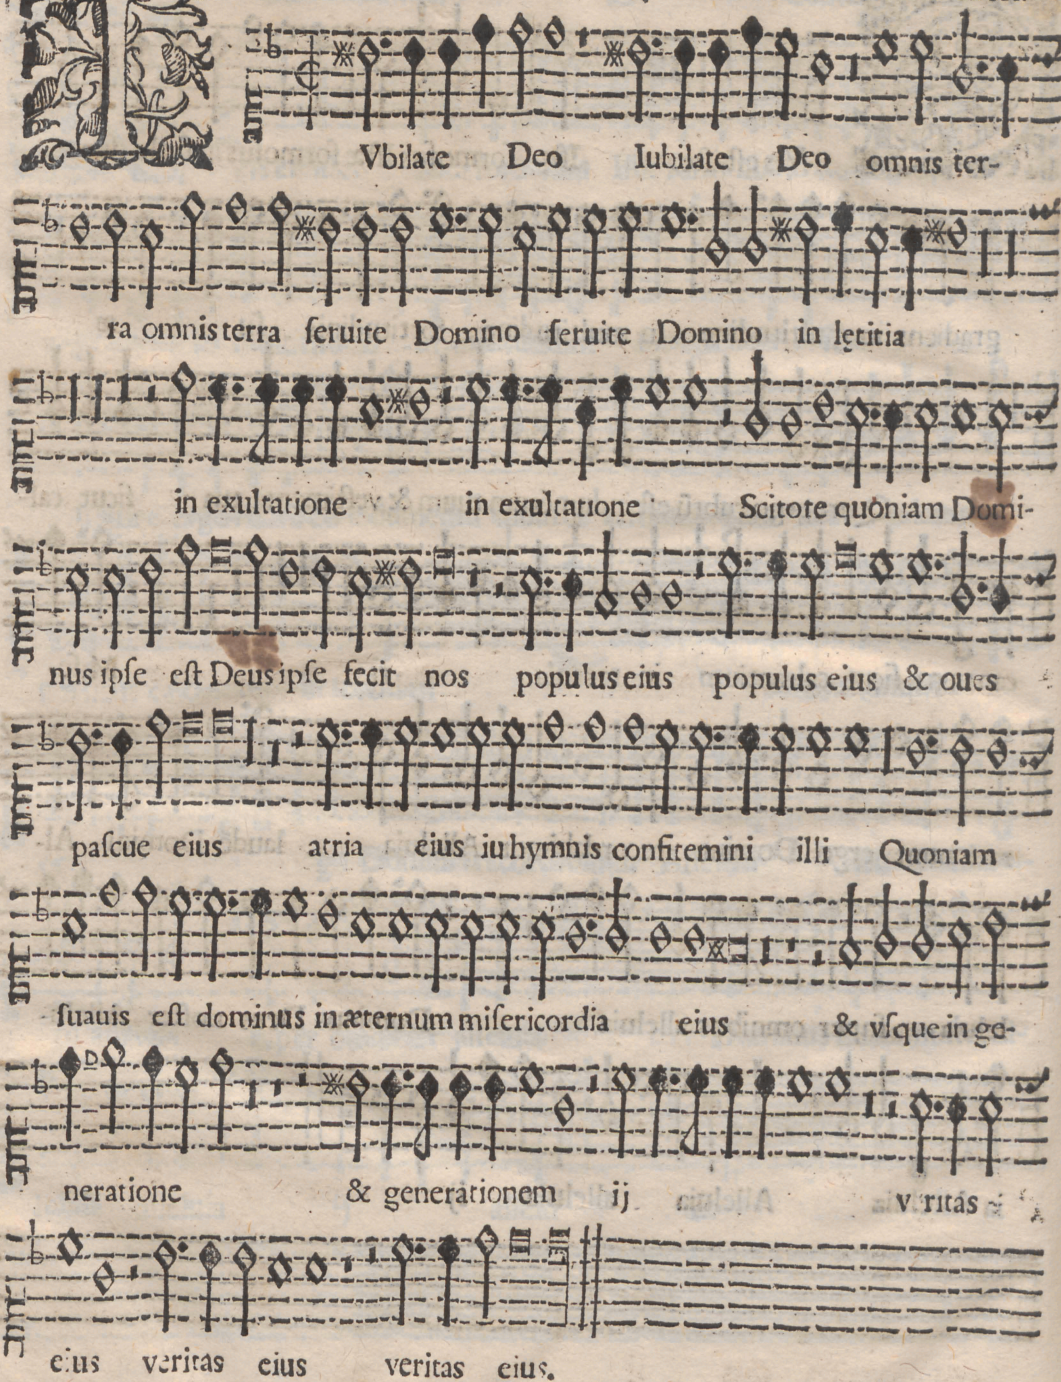 I
Vbilate Deo Iubilate Deo omnis ter-
ra omnis terra ſeruite Domino ſeruite Domino in lętitia
in exultatione in exultatione Scitote quoniam Domi-
nus ipſe eſt Deus ipſe fecit nos populus eius populus eius & oues
paſcue eius atria eius iu hymnis confitemini illi Quoniam
ſuauis eſt dominus in æternum miſericordia eius & vſque in ge-
neratione & generationem ij veritas
eius veritas eius veritas eius.